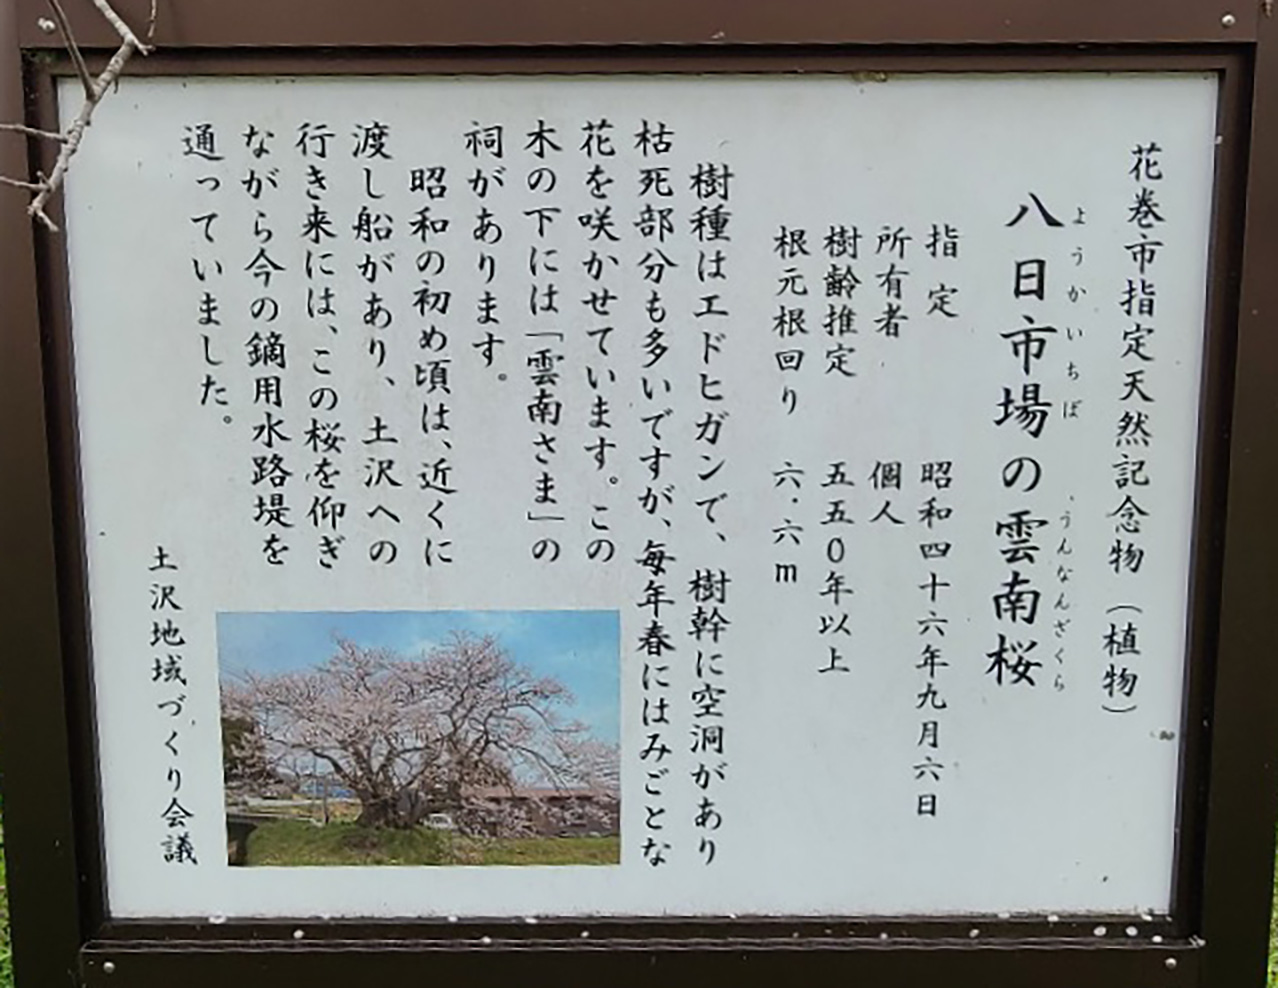 花巻市指定天然記念物（植物）
八日市場の雲南桜
ようかいちば
うんなんざくら
指定 昭和四十六年九月六日
所有者 個人
樹齢推定 五五０年以上
根元根回り 六・六m
樹種はエドヒガンで、樹幹に空洞があり
枯死部分も多いですが、毎年春にはみごとな
花を咲かせています。この
木の下には「雲南さま」の
祠があります。
昭和の初め頃は、近くに
渡し船があり、土沢への
行き来には、この桜を仰ぎ
ながら今の鏑用水路堤を
通っていました。
土沢地域づくり会議